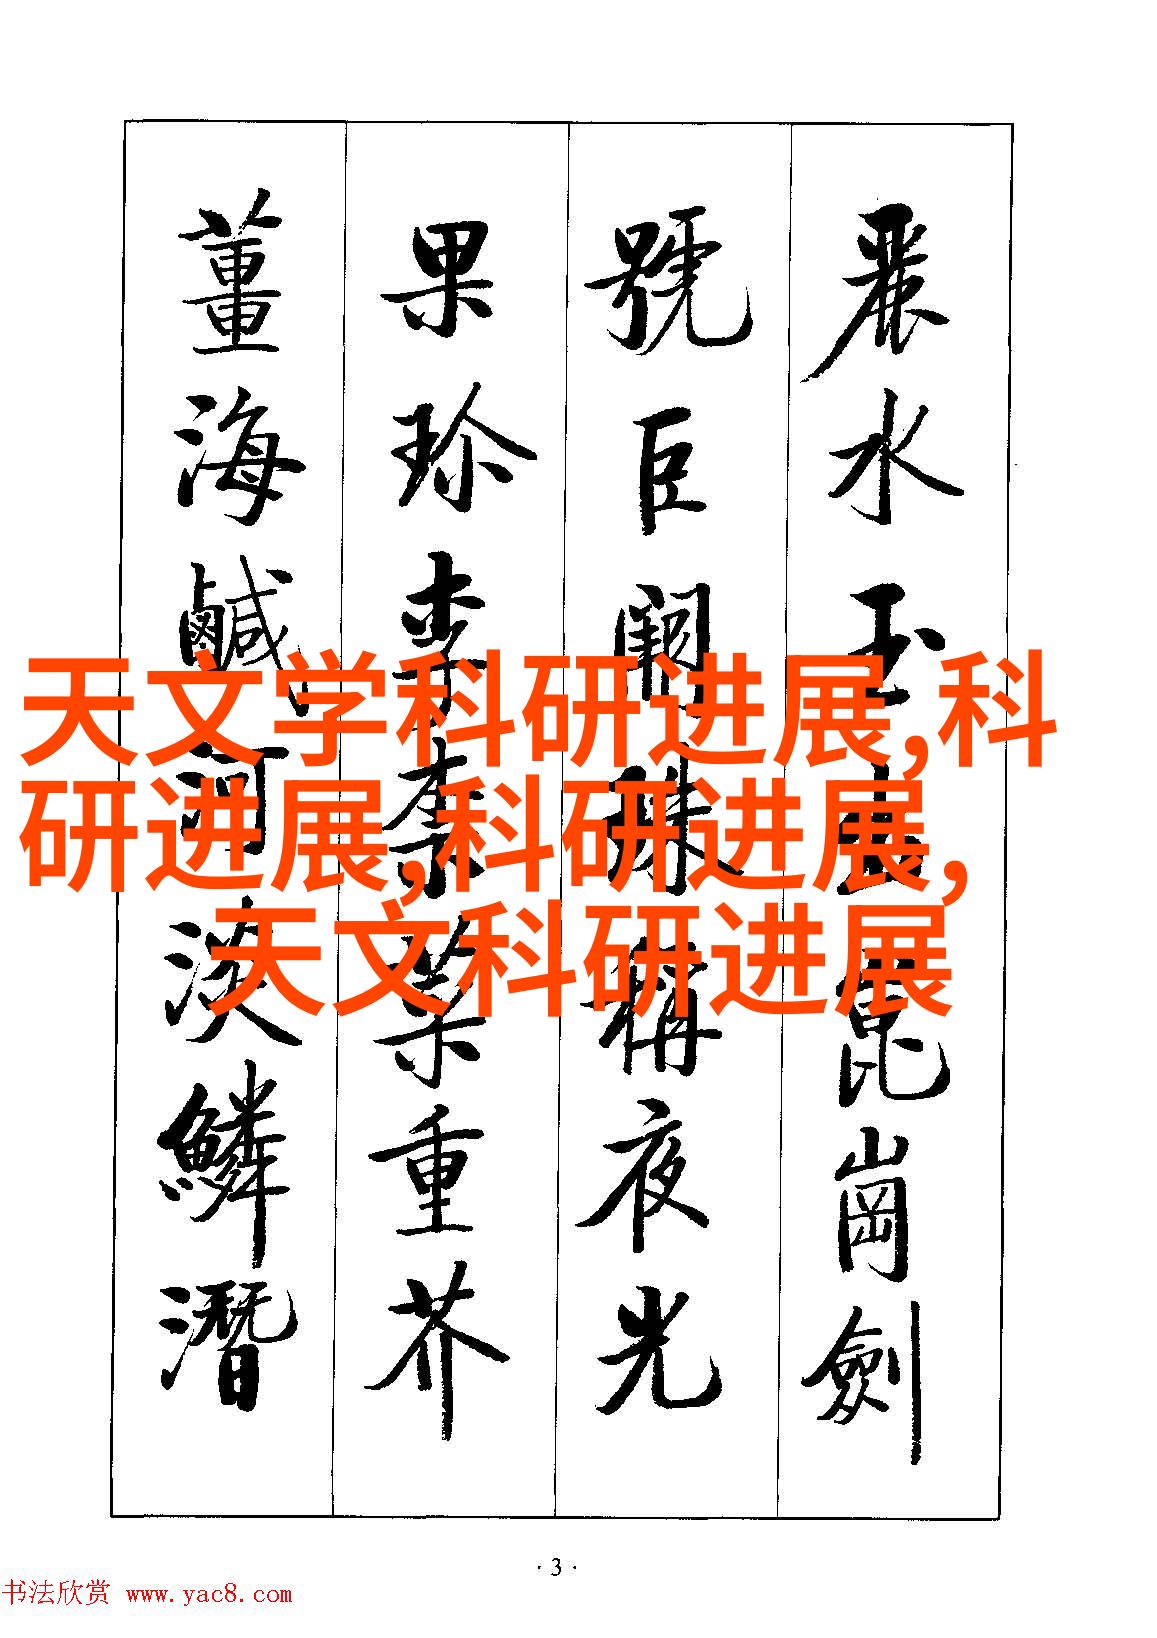 麗水玉出崑崗劍
號巨闕珠稱夜光
果珍李柰菜重芥
薑海鹹河淡鱗潛
天文学科研进展,科
研进展,科研进展,
天文科研进展
·3·
书法欣赏 www.yac8.com